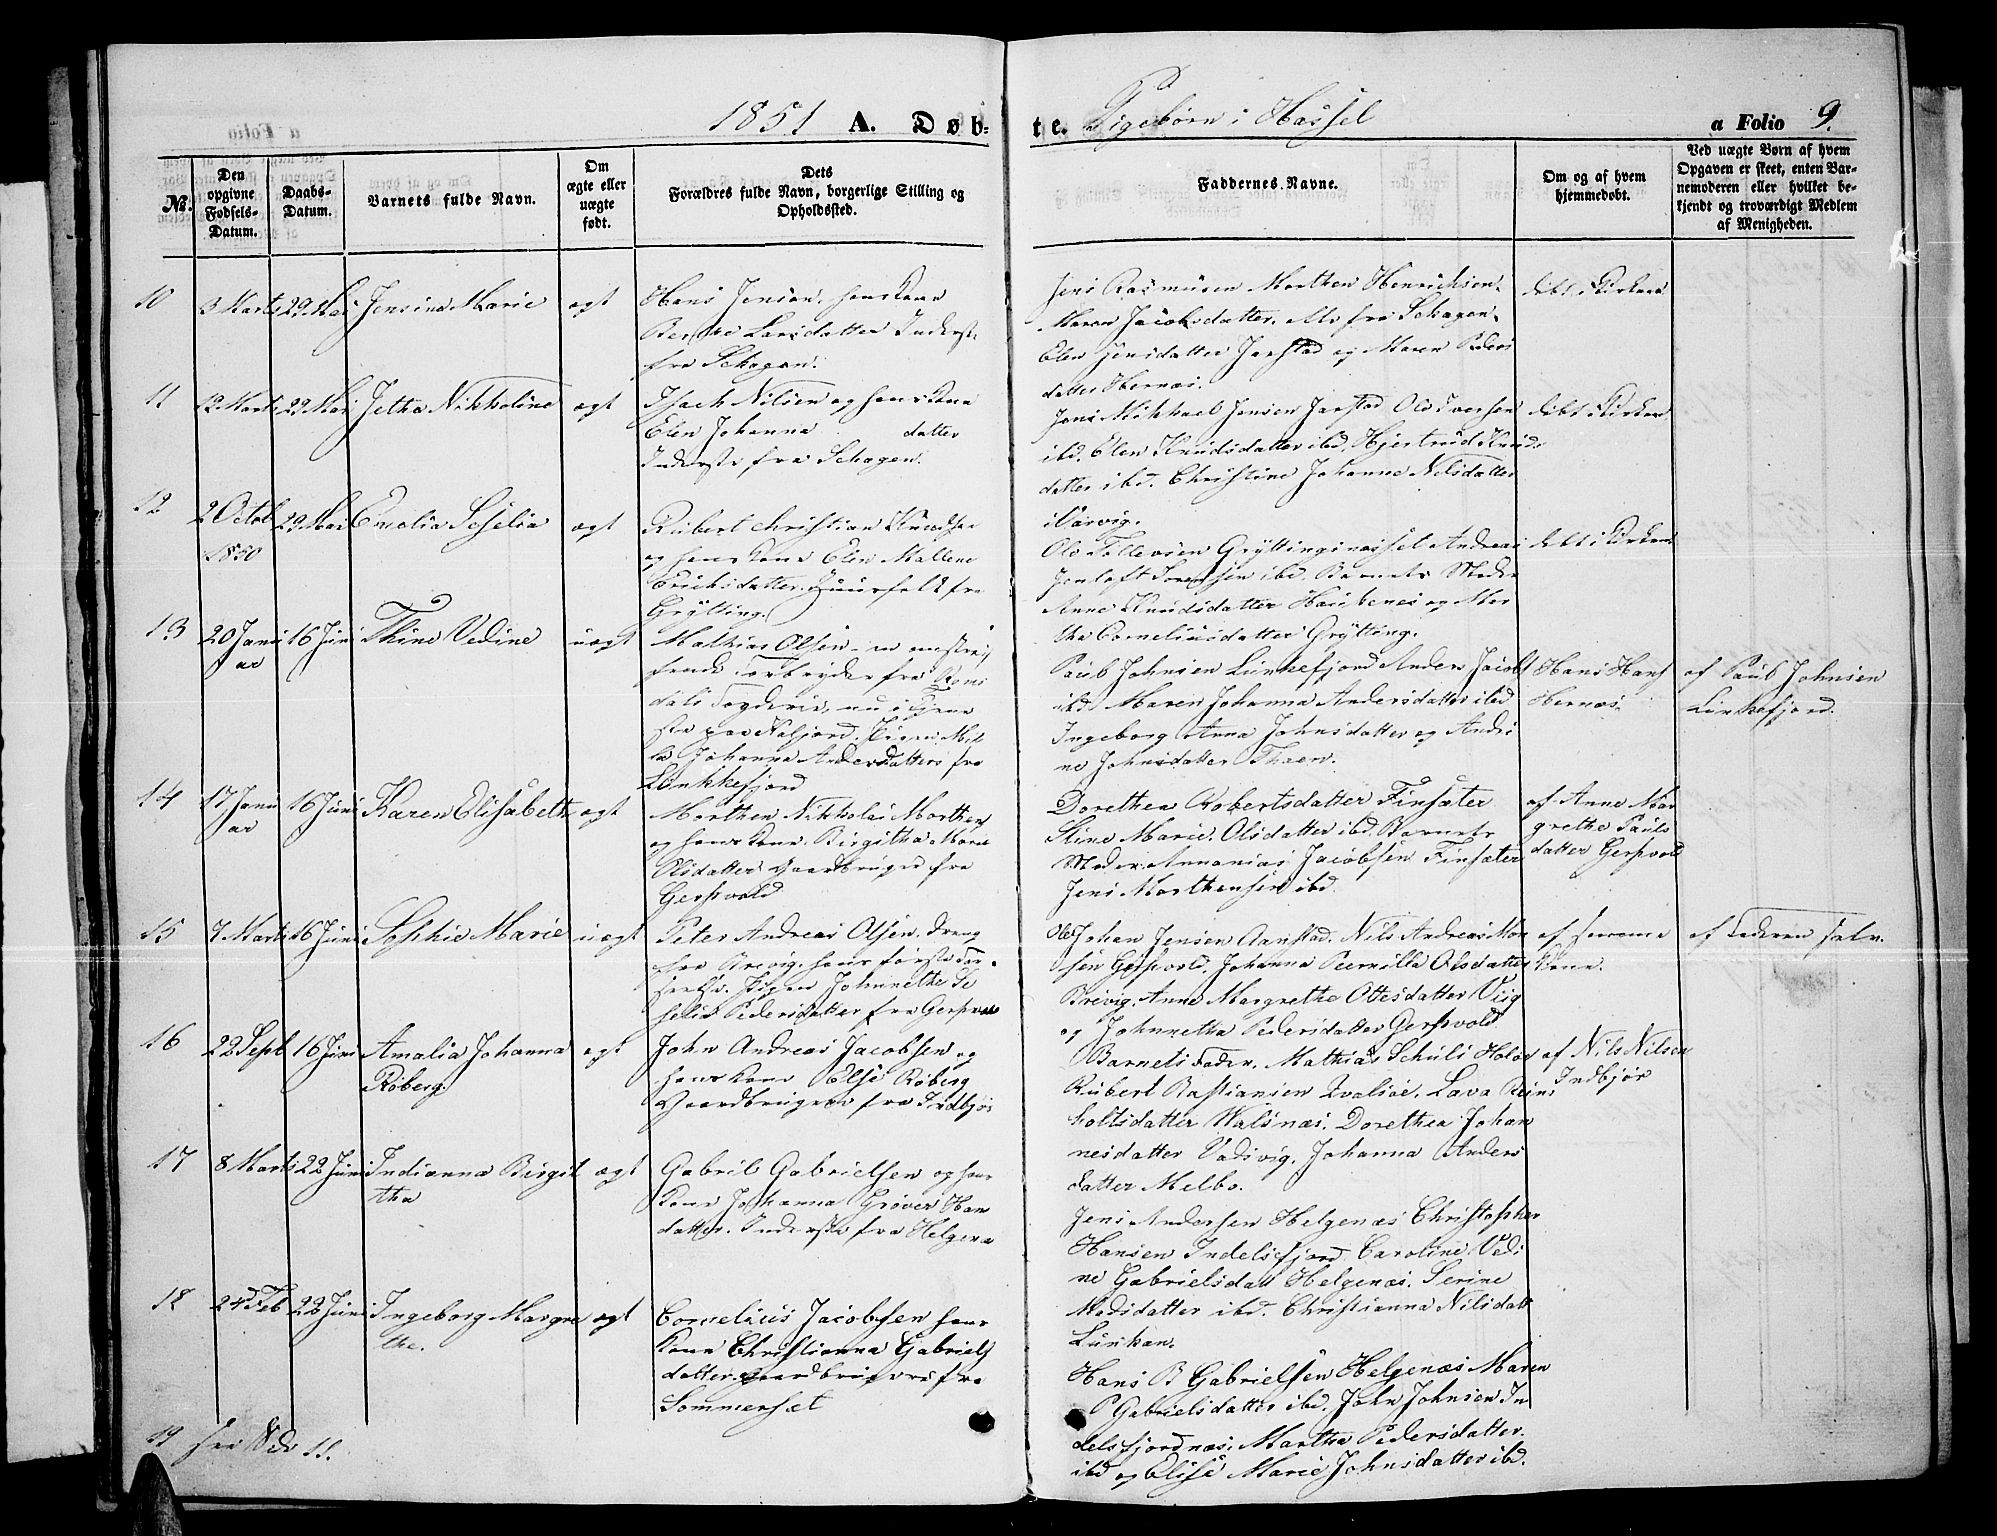 1851 A. Døb-
te. Pigebørn i Hassel
a Folio 9.
No.
Den opgivne Fødsels-Datum.
Daabs-Datum.
Barnets fulde Navn.
Om ægte eller uægte født.
Dets
Forældres fulde Navn, borgerlige Stilling og
Opholdssted.
Faddernes Navne.
Om og af hvem
hjemmedøbt.
Ved uægte Børn af hvem
Opgaven er skeet, enten Bar-
nemoderen eller hvilket be-
kjendt og troværdigt Medlem
af Menigheden.
10 3 Marts 29 Mai Jensine Marie ægt
Hans Jensen, hans Kone
Berthe Larsdatter Inderst
fra Schagen.
Jens Rasmusen Morthen Henrichsen
Maren Jacobsdatter, Alle fra Schagen
Elen Jensdatter Jarstad og Maren Peders
datter Hernæs.
døbt i Kirken
11 12 Marts 29 Mai Jetha Nikholine ægt
Isach Nilsen og hans Kone
Elen Johanna datter
Inderste fra Schagen.
Jens Mikhael Jensen Jarstad Ole Iversen
ibd. Elen Knudsdatter ibd. Hjertrud Knuds
datter ibd. Christine Johanne Nilsdatter
i Vorvig.
døbt i Kirken
12 2 Octob 29 Mai Emelia Seselia ægt
1850
Rubert Christian Knudsen
og hans Kone Elen Mallene
Erichsdatter Huusfolk fra
Grytting.
Ole Tollevsen Gryttingsnæsset Andreas
Jenloft Sorensen ibd. Barnets Moder
Anne Knudsdatter Haubenes og Mar
the Corneliusdatter Grytting.
døbt i Kirken
13 20 Janu 16 Juni Thine Vedine uægt
ar
Mathias Olsen en omstrei
fende fra Roms
dals Fogderie, nu i Tjene
ste paa Kaljord. Pigen
Johanna Andersdatter fra
Lunkkefjord
Paul Johnsen Lunkefjord Anders Jacobs
ibd. Maren Johanna Andersdatter ibd
Ingeborg Anna Johnsdatter og Andri
ne Johnsdatter Theen.
Hans Hans
Hernæs.
af Paul Johnsen
Lunkefjord.
14 17 Janu 16 Juni Karen Elisabeth ægt
ar
Morthen Nikholai Morthens
og hans Kone Birgitha Marie
Olsdatter Gaardbruger fra
Gerssvold
Dorethea Robertsdatter Finsæter
Stine Marie Olsdatter ibd. Barnets
Moder. Annanias Jacobsen Finsæter
Jens Morthensen ibd.
af Anne Mar
grethe Pauls
datter Gerssvold
15 7 Marts 16 Juni Sophie Marie uægt
Peter Andreas Olsen, Dreng
fra Brevig, hans første For
seelse. Pigen Johnnetha Se
selia Pedersdatter fra Gerssvold
Ole Johan Jensen Aanstad. Nils Andreas Mon
sen Gerssvold, Johanna Pernilla Olsdatter
Brevig. Anne Margrethe Ottesdatter Vig
og Johnnetha Pedersdatter Gerssvold
af samme
Kone.
af Faderen selv.
16 22 Sept 16 Juni Amalia Johanna ægt
Røberg
John Andreas Jacobsen og
hans Kone Else Røberg
Gaardbrugere fra Indbjør
Barnets Fader, Mathias Schuls Holde
Rubert Bastiansen Kvalsøe. Lava Rein
holtsdatter Walsnæs, Dorethea Johan
nesdatter Vadsvig. Johanna Anders
datter Melbo.
af Nils Nilsen
Indbjør
17 8 Marts 22 Juni Indianna Birgit ægt
tha
Gabriel Gabrielsen og hans
Kone Johanna Grøver Hans
datter. Inderste fra Helgenæ
Jens Andersen Helgenæs Christopher
Hansen Indelsfjord Caroline Vedi
ne Gabrielsdatt Helgenæs. Serine
Madsdatter ibd. Christianna Nilsdatt
Lunkan.
18 24 Feb 22 Juni Ingeborg Margre ægt
the.
Cornelius Jacobsen hans
Kone Christianna Gabriels
datter. fra
Sommerset
Hans B Gabrielsen Helgenæs Maren
P Gabrielsdatter ibd. John Johnsen In
delsfjordnæs. Martha Pedersdatter
ibd og Elise Marie Johnsdatter ibd.
19 see 11.